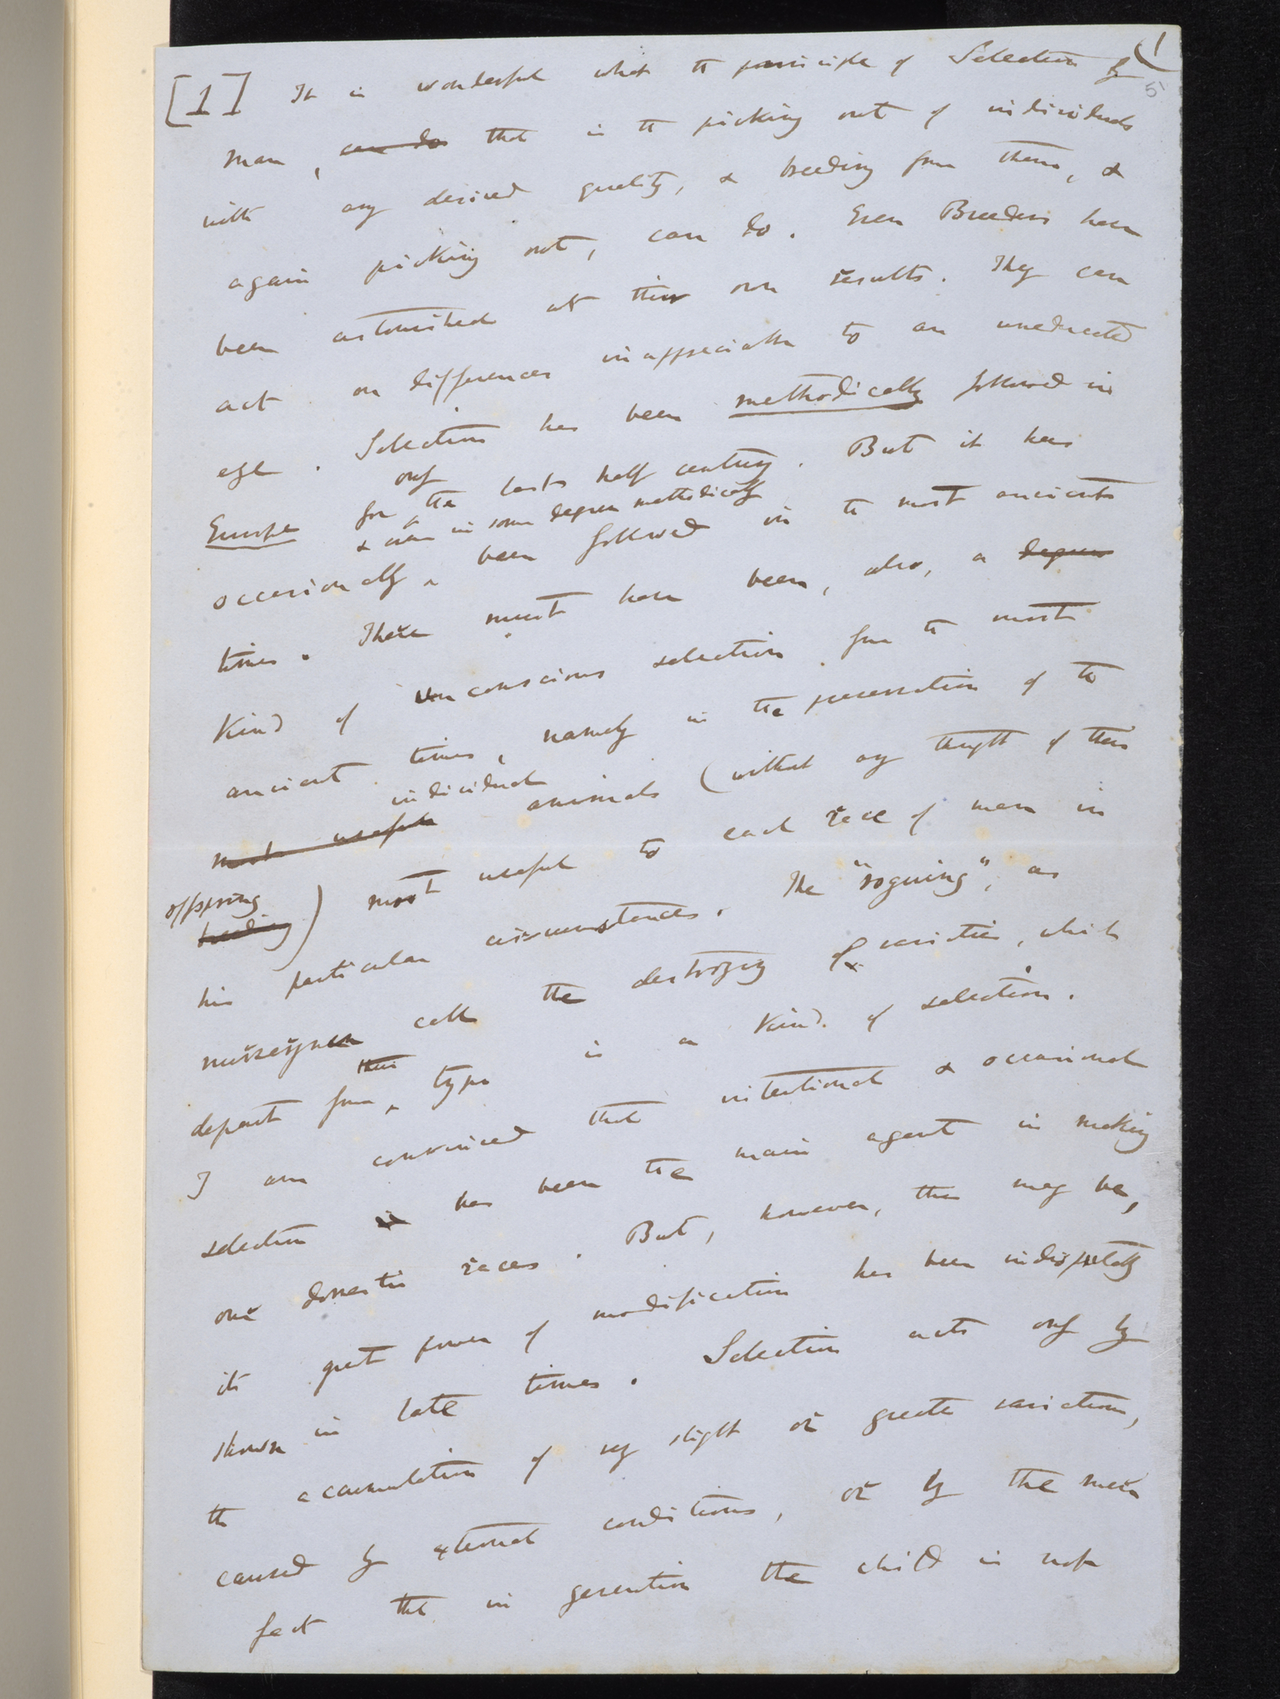 1
5
[1] It is wonderful what the principle of Selection by
Man, can do that is the picking out of individuals
with any desired quality, & breeding from them, &
again picking out, can do. Even Breeders have
been astonished at their own results. They can
act on differences inappreciable to an uneducated
eye. Selection has been methodically followed in
Europe for only the last half century. But it has
occasionally & even in some degree methodically been followed in the most ancient
times. There must have been, also, a degree
Kind of Unconscious selection from the most
ancient times, namely in the preservation of the
most useful individual animals (without any thought of their
offspring breeding) most useful to each race of man in
his particular circumstances. The "roguing", as
nurserymen call the destroying of varieties, which
depart from their type is a kind of selection.
I am convinced that intentional & occasional
selection is has been the main agent in making
our domestic races. But, however, this may be,
its great power of modification has been indisputably
shown in late times. Selection acts only by
the accumulation of very slight or greater variations,
caused by external conditions, or by the mere
fact that in generation the child is not